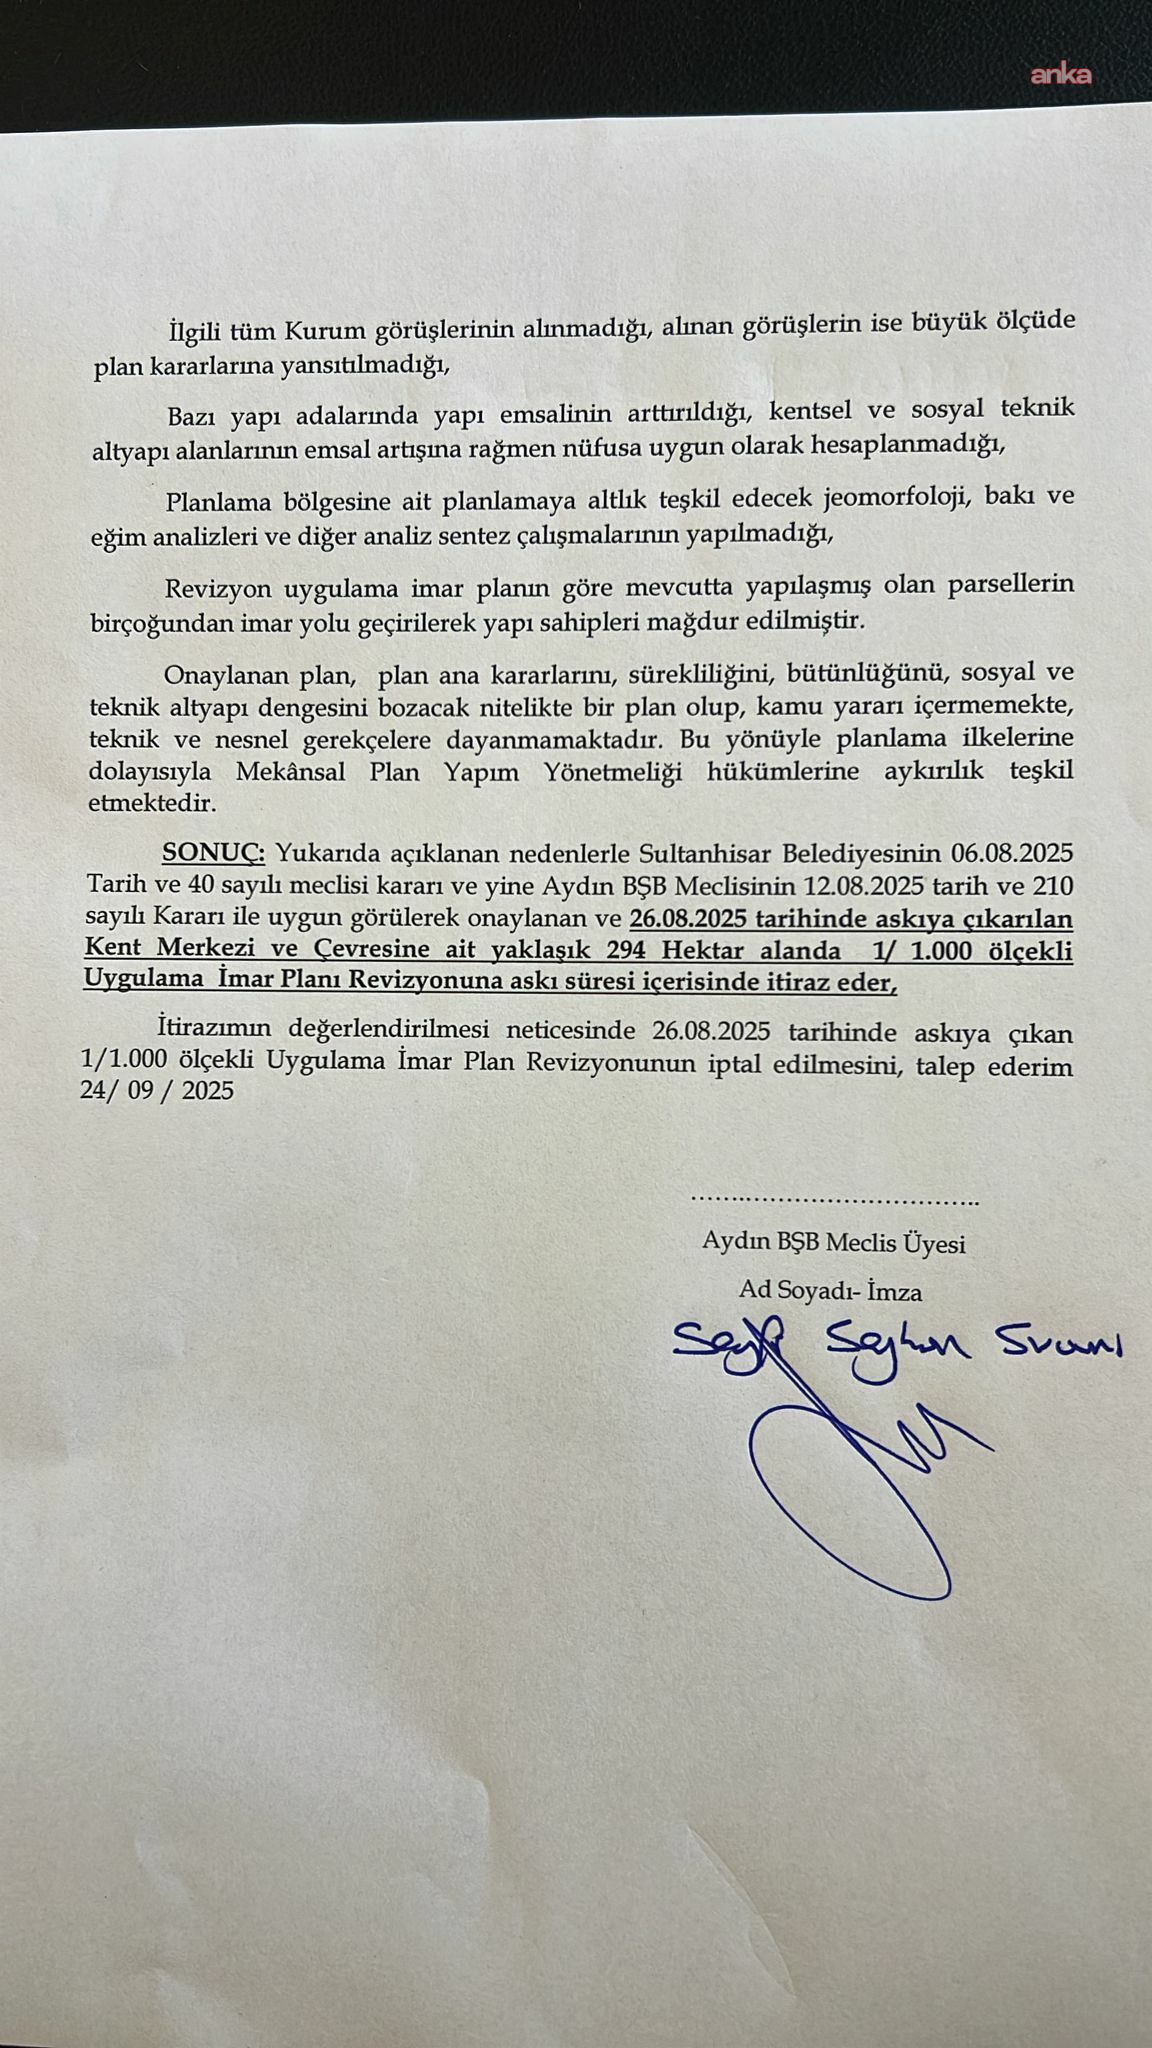 anka
İlgili tüm Kurum görüşlerinin alınmadığı, alınan görüşlerin ise büyük ölçüde
plan kararlarına yansıtılmadığı,
Bazı yapı adalarında yapı emsalinin arttırıldığı, kentsel ve sosyal teknik
altyapı alanlarının emsal artışına rağmen nüfusa uygun olarak hesaplanmadığı,
Planlama bölgesine ait planlamaya altlık teşkil edecek jeomorfoloji, bakı ve
eğim analizleri ve diğer analiz sentez çalışmalarının yapılmadığı,
Revizyon uygulama imar planın göre mevcutta yapılaşmış olan parsellerin
birçoğundan imar yolu geçirilerek yapı sahipleri mağdur edilmiştir.
Onaylanan plan, plan ana kararlarını, sürekliliğini, bütünlüğünü, sosyal ve
teknik altyapı dengesini bozacak nitelikte bir plan olup, kamu yararı içermemekte,
teknik ve nesnel gerekçelere dayanmamaktadır. Bu yönüyle planlama ilkelerine
dolayısıyla Mekânsal Plan Yapım Yönetmeliği hükümlerine aykırılık teşkil
etmektedir.
SONUÇ: Yukarıda açıklanan nedenlerle Sultanhisar Belediyesinin 06.08.2025
Tarih ve 40 sayılı meclisi kararı ve yine Aydın BŞB Meclisinin 12.08.2025 tarih ve 210
sayılı Kararı ile uygun görülerek onaylanan ve 26.08.2025 tarihinde askıya çıkarılan
Kent Merkezi ve Çevresine ait yaklaşık 294 Hektar alanda 1/ 1.000 ölçekli
Uygulama İmar Planı Revizyonuna askı süresi içerisinde itiraz eder,
İtirazımın değerlendirilmesi neticesinde 26.08.2025 tarihinde askıya çıkan
1/1.000 ölçekli Uygulama İmar Plan Revizyonunun iptal edilmesini, talep ederim
24/ 09 / 2025
....................................
Aydın BŞB Meclis Üyesi
Ad Soyadı- İmza
Seyhan